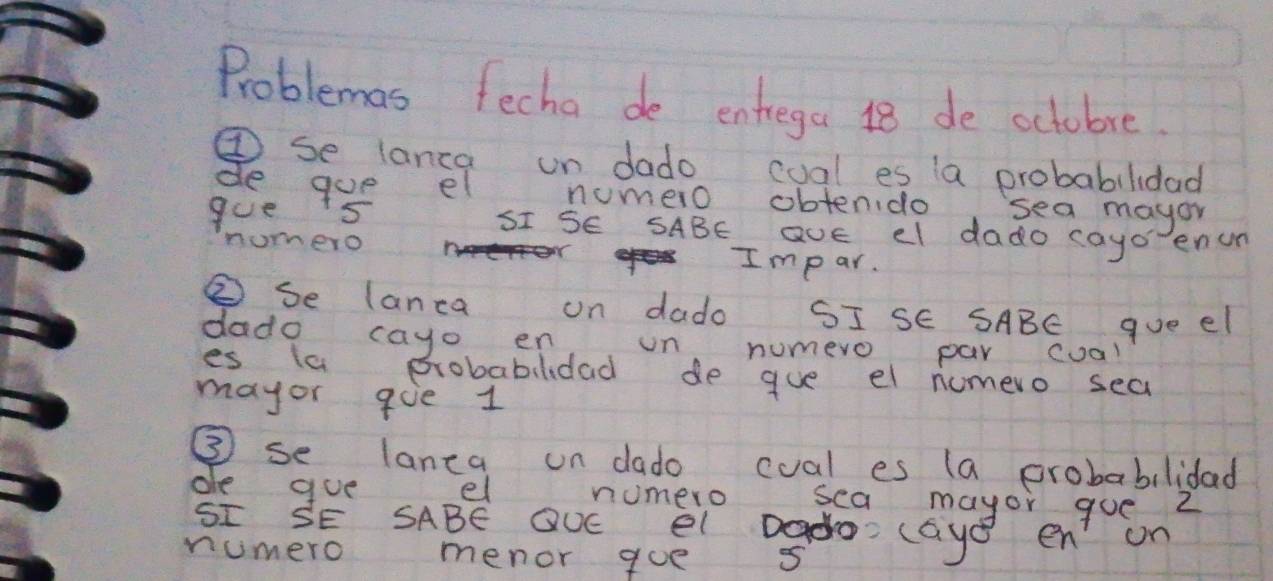 Problemas fecha de entrega 18 de octubre.
① Se lanza un dado cual es la probabilidad
de que el numero obtenido sea mayor
que 5 SI SE SABE QUE el dado cayo en un
numero Impar.
② Se lanza un dado SI SE SABE que el
dado cayo en un numero par cual
es la probabilidad de que el numero sea
mayor que 1
③ se lanza un dado cual es la probabilidad
de que el numero sea mayor que 2
SI SE SABE QUE el Dado cayo en un
numero menor que 5